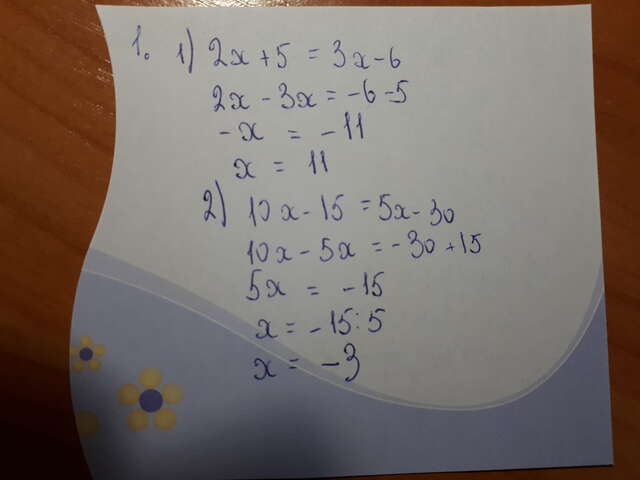 1. 1) 2x + 5 = 3x - 6
2x - 3x = -6 - 5
-x = -11
x = 11
2) 10x - 15 = 5x - 30
10x - 5x = -30 + 15
5x = -15
x = -15:5
x = -3